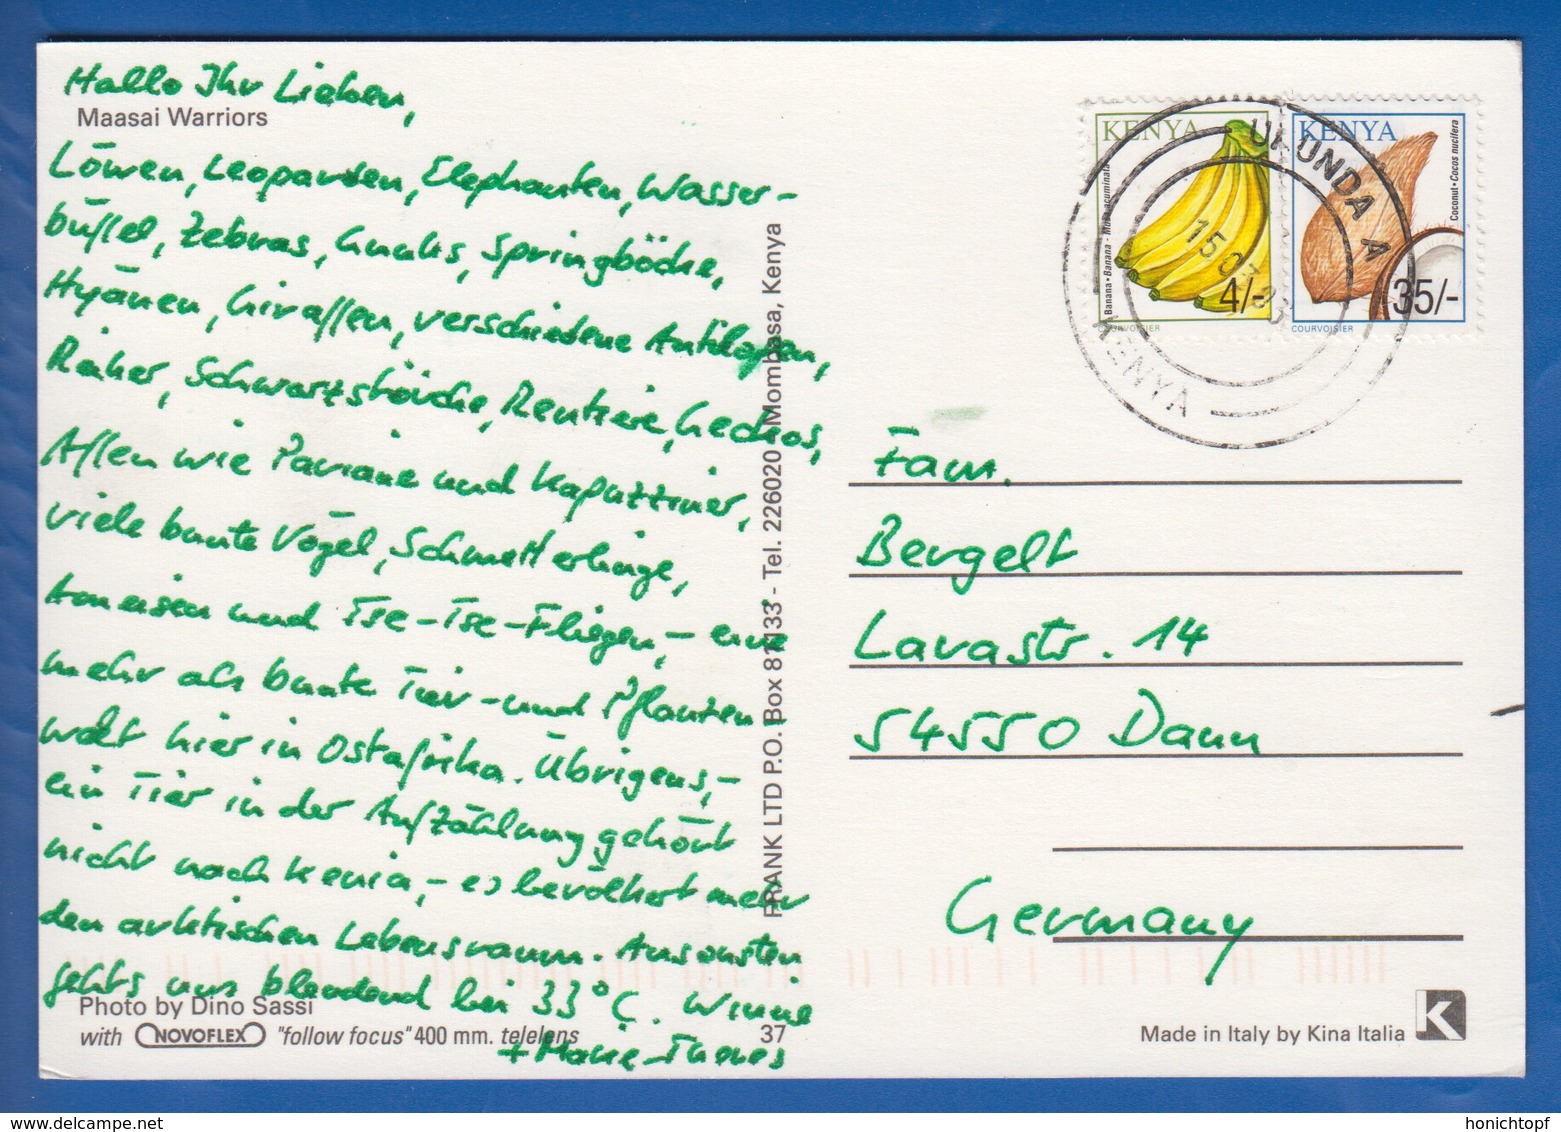 Hallo Ihr Lieben,
Maasai Warriors
Löwen, Leoparden, Elephanten, Wasser-
büffel, Zebras, Gnuhs, Springböcke,
Hyänen, Giraffen, verschiedene Antilopen,
Reiher, Schwarzstörche, Rentiere, Geckos,
Affen wie Paviane und Kapuzziner,
viele bunte Vögel, Schmetterlinge,
Ameisen und Tse-Tse-Fliegen, - eine
mehr als bunte Tier- und Pflanzen-
welt hier in Ostafrika. Übrigens, -
ein Tier in der Aufzählung gehört
nicht nach Kenia, - es bevölkert mehr
den arktischen Lebensraum. Ansonsten
gehts uns blendend bei 33°C. Winne
+ Marie-Theres
Photo by Dino Sassi
with NOVOFLEX "follow focus" 400 mm. telelens
37
FRANK LTD P.O. Box 81133 - Tel. 226020 Mombasa, Kenya
KENYA
Banana • Banana - Musa acuminata
4/-
COURVOISIER
KENYA
Coconut • Cocos nucifera
35/-
COURVOISIER
UKUNDA A
15 07
KENYA
Fam.
Bergelt
Lavastr. 14
54550 Daun
Germany
Made in Italy by Kina Italia
K
honichtopf